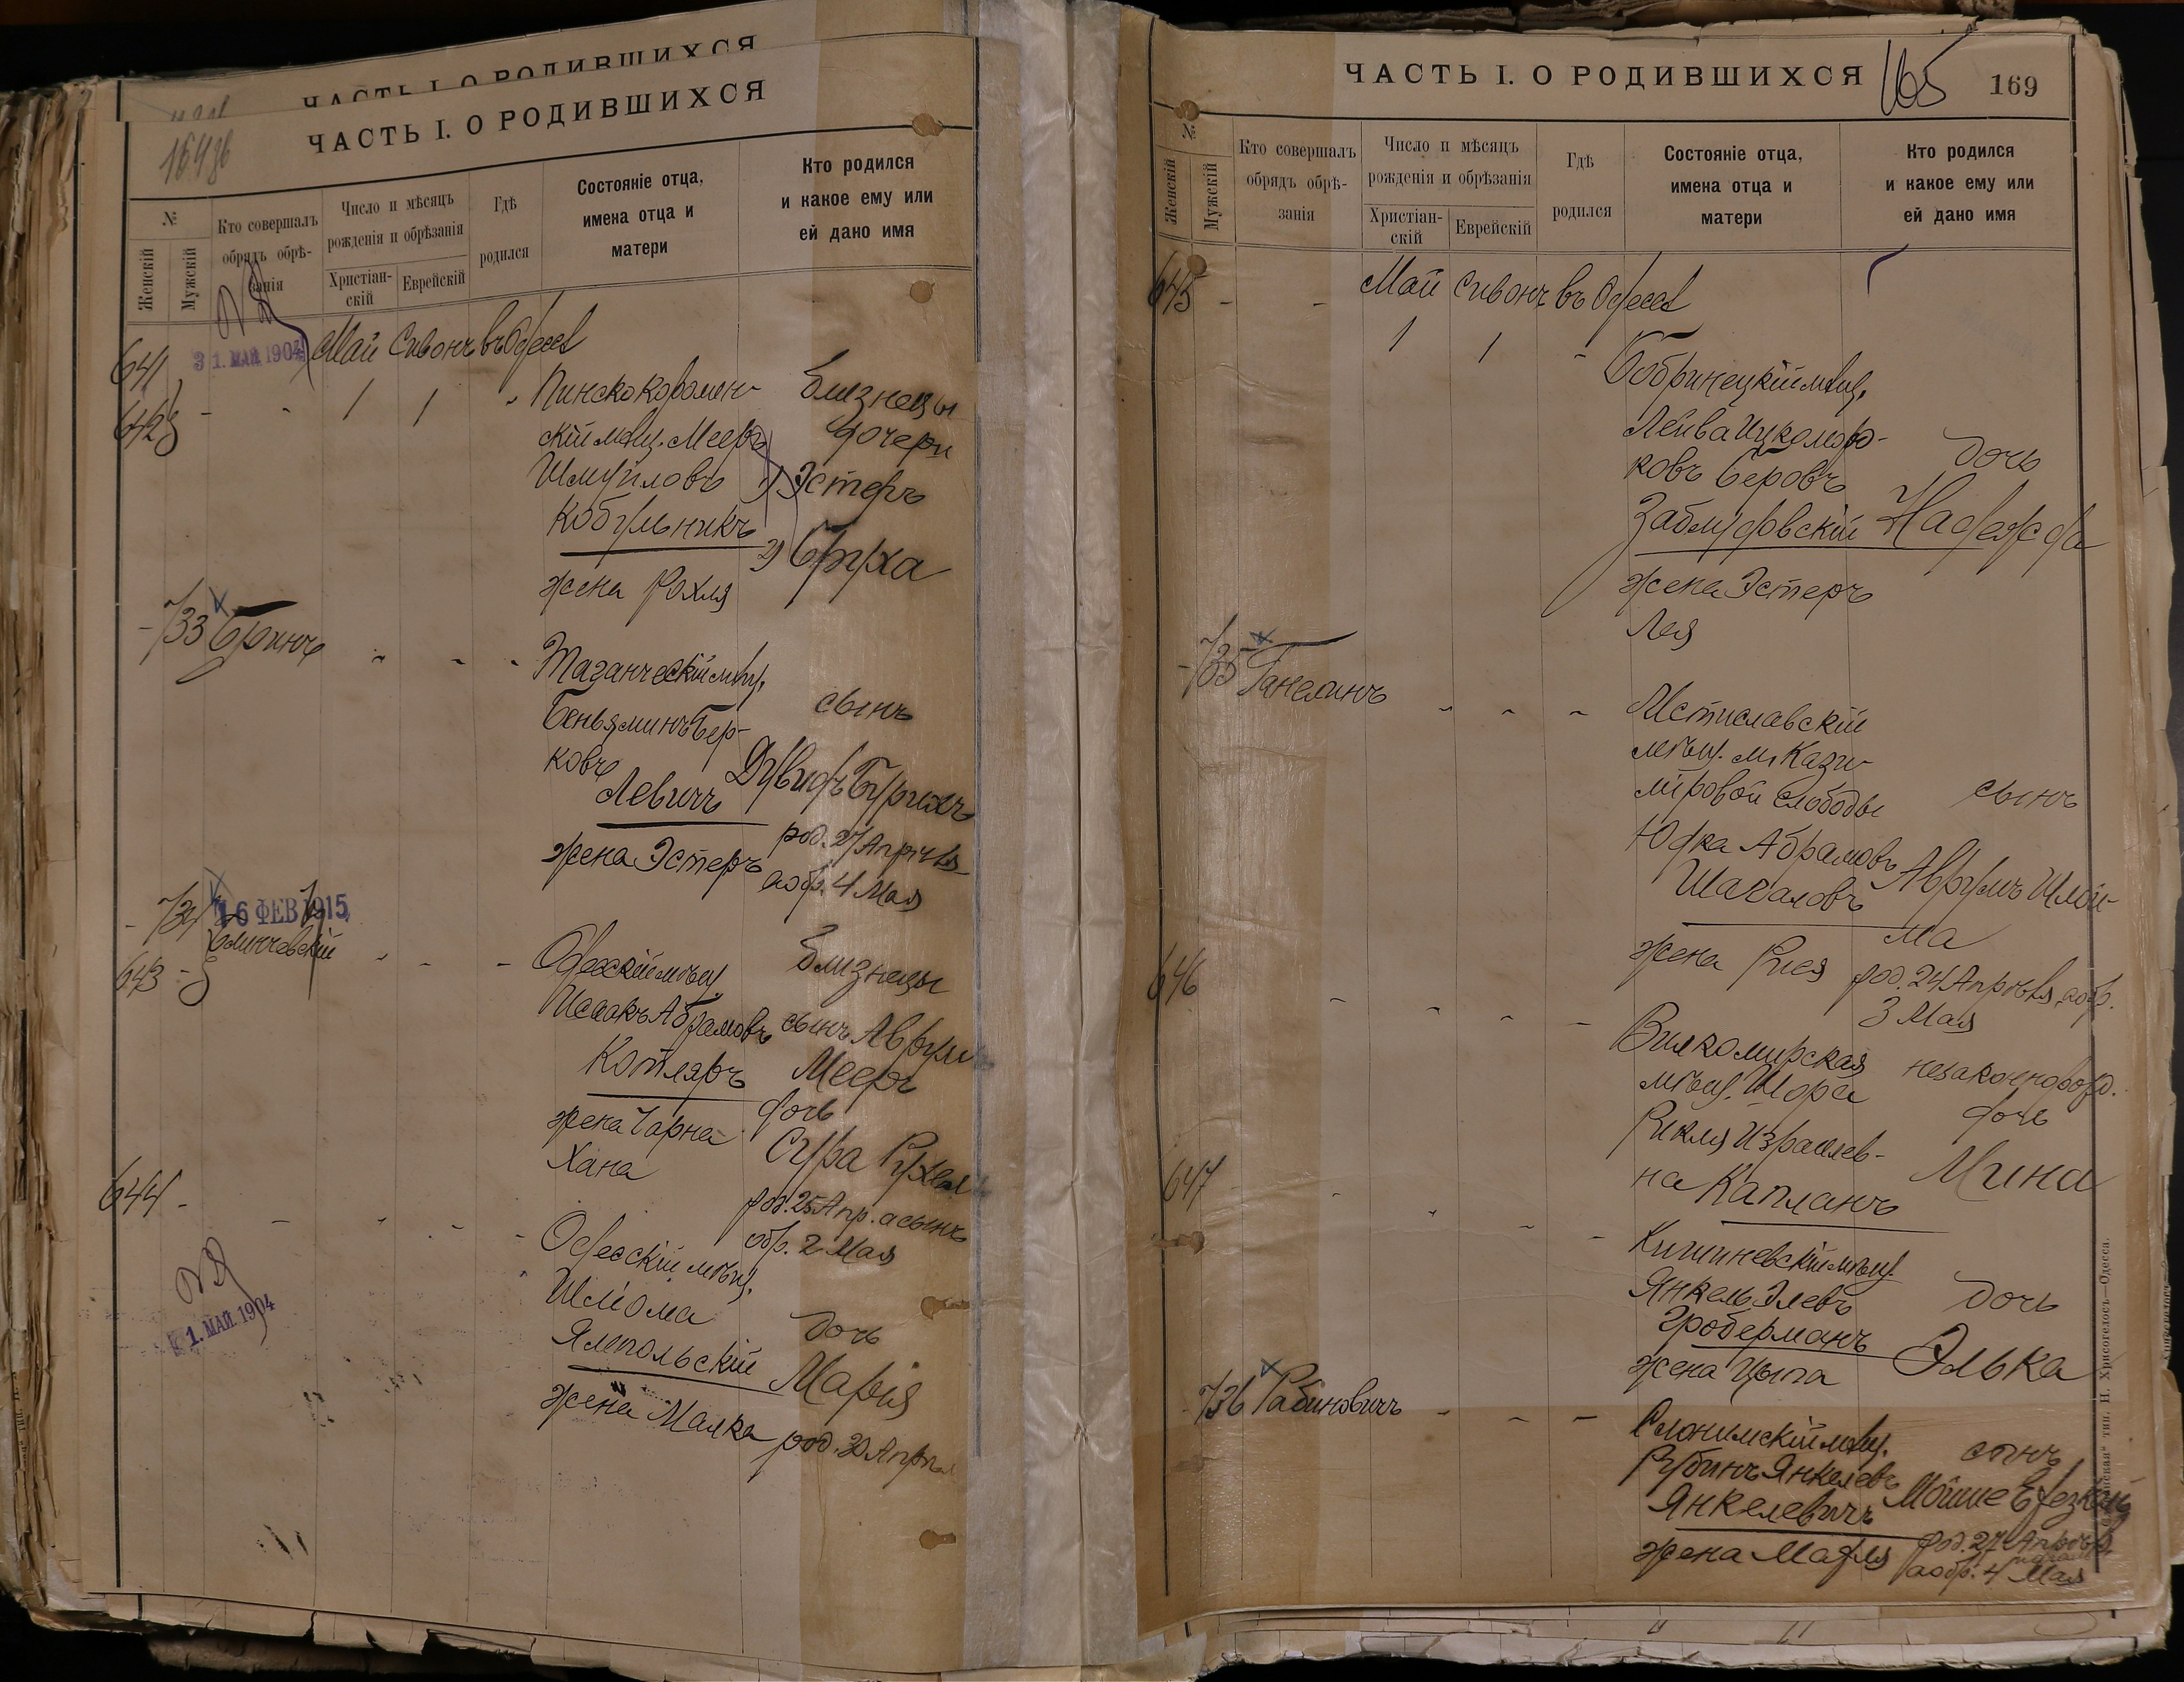 ЧАСТЬ I. О РОДИВШИХСЯ
ЧАСТЬ I. О РОДИВШИХСЯ
№
Женскій
Мужскій
Кто совершалъ
обрядъ обрѣ-
занія
Число и мѣсяцъ
рожденія и обрѣзанія
Христіан-
скій
Еврейскій
Гдѣ
родился
Состояніе отца,
имена отца и
матери
Кто родился
и какое ему или
ей дано имя
31. МАЙ 1904
641
642
Май Сивонъ въ Одессѣ
1 1
Пинскокаролин-
скій мѣщ. Мееръ
Шмуиловъ
Кобульникъ
жена Рохля
Близнецы
дочери
1) Эстеръ
2) Бруха
733 Бринъ
мѣщ.
Беньяминъ Бер-
ковъ
Левичъ
жена Эстеръ
сынъ
Дувидъ Бурихъ
род. 27 Апрѣля
а обр. 4 Мая
734
16 ФЕВ 1915
643
Одесскій мѣщ.
Исаакъ Абрамовъ
Котляръ
жена Чарна
Хана
Близнецы
сынъ Аврум
Мееръ
дочь
Сура Рухель
род. 25 Апр. а сынъ
обр. 2 Мая
644
1. МАЙ. 1904
Одесскій мѣщ.
Шлема
Ямпольскій
жена Малка
дочь
Марія
род. 30 Апрѣл
ЧАСТЬ I. О РОДИВШИХСЯ
165
169
№
Женскій
Мужскій
Кто совершалъ
обрядъ обрѣ-
занія
Число и мѣсяцъ
рожденія и обрѣзанія
Христіан-
скій
Еврейскій
Гдѣ
родился
Состояніе отца,
имена отца и
матери
Кто родился
и какое ему или
ей дано имя
645
Май Сивонъ въ Одессѣ
1 1
Бобринецкій мѣщ.
Лейва Ицкомор-
ковъ Беровъ
Заблудовскій
жена Эстеръ
Лея
дочь
Надежда
735 Ганелинъ
Мстиславскій
мѣщ. м. Кази-
міровой Слободы
Юдка Абрамовъ
Шагаловъ
жена Рися
сынъ
Аврумъ Шлой-
ма
род. 24 Апрѣля, а обр.
3 Мая
646
Вилкомирская
мѣщ. Шора
Рикля Израилев-
на Капланъ
незаконнорожд.
дочь
Мина
647
Кишиневскій мѣщ.
Янкель Элевъ
Гроберманъ
жена Цыпа
дочь
Элька
736 Рабиновичъ
Слонимскій мѣщ.
Рубинъ Янкелевъ
Янкелевичъ
жена Мадля
сынъ
Мойше Ехезкель
род. 27 Апрѣля
а обр. 4 Мая
тип. Н. Хрисогелосъ—Одесса.